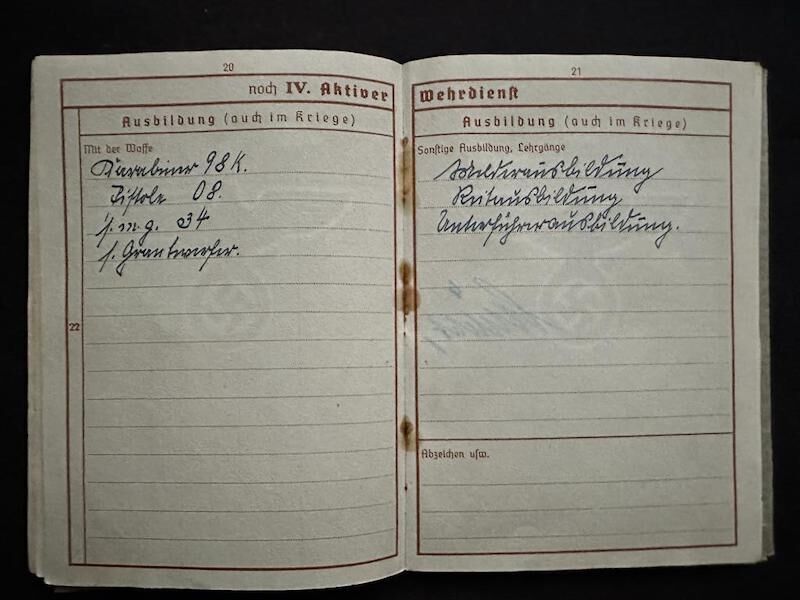 20
noch IV. Aktiver
Ausbildung (auch im Kriege)
Mit der Waffe
Karabiner 98 K.
Pistole 08.
s. m. g. 34
s. Granatwerfer.
22
21
Wehrdienst
Ausbildung (auch im Kriege)
Sonstige Ausbildung, Lehrgänge
Melderausbildung
Reitausbildung
Unterführerausbildung.
Abzeichen usw.